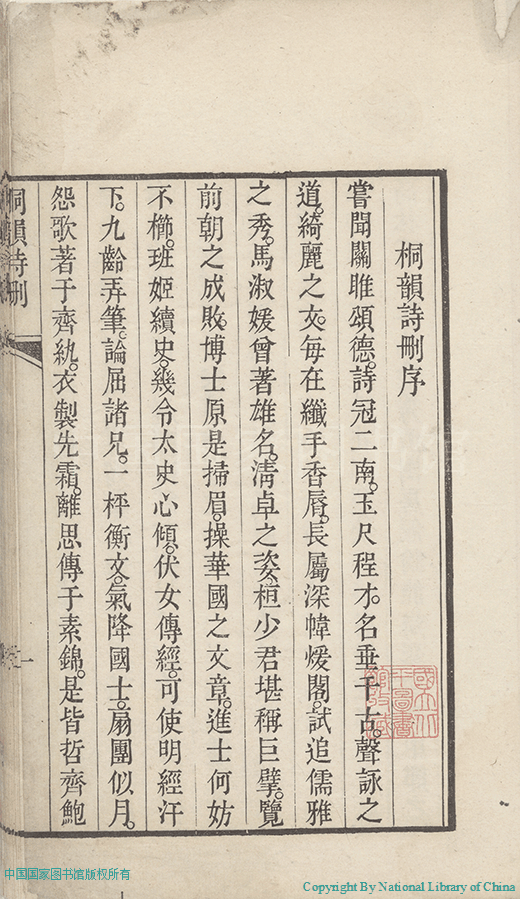 桐韻詩刪序
嘗聞關雎頌德。詩冠二南。玉尺程才。名垂千古。聲詠之
道。綺麗之文。每在纖手香唇。長屬深幃煖閣。試追儒雅
之秀。馬淑媛曾著雄名。清卓之姿。桓少君堪稱巨擘。覽
前朝之成敗。博士原是掃眉。操華國之文章。進士何妨
不櫛。班姬續史。幾令太史心傾。伏女傳經。可使明經汗
下。九齡弄筆。論屈諸兄。一枰衡文。氣降國士。扇團似月。
怨歌著于齊紈。衣製先霜。離思傳于素錦。是皆哲齊鮑
桐韻詩刪
一
中国国家图书馆版权所有
Copyright By National Library of China